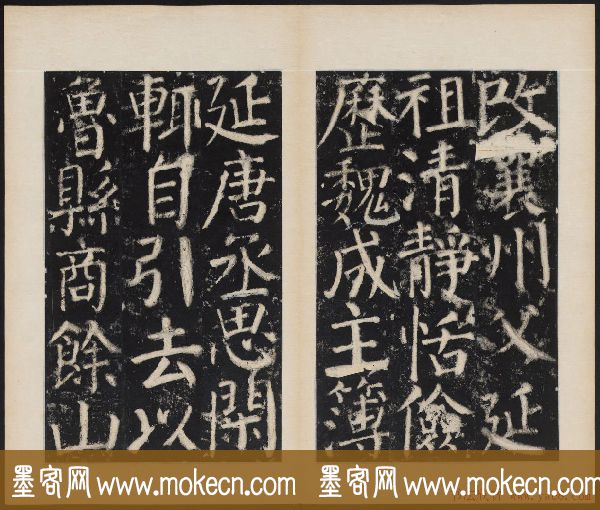 改襄州父延
祖清靜恬儉
歷魏成主簿
延唐丞思閑
輒自引去以
魯縣商餘山
墨客网 www.mokecn.com
墨客网 www.mokecn.com